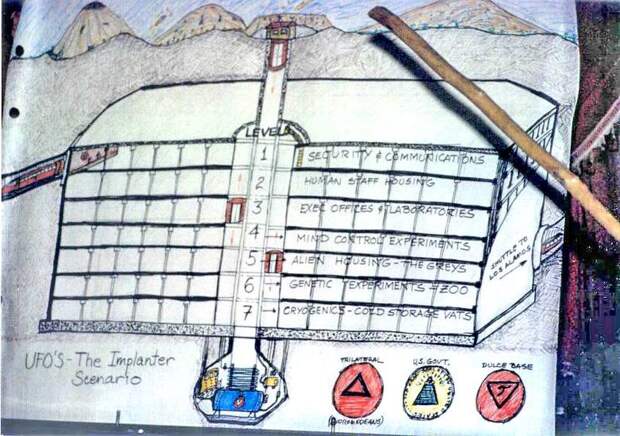 LEVELS
1 SECURITY & COMMUNICATIONS
2 HUMAN STAFF HOUSING
3 EXEC OFFICES & LABORATORIES
4 MIND CONTROL EXPERIMENTS
5 ALIEN HOUSING - THE GREYS
6 GENETIC EXPERIMENTS - ZOO
7 CRYOGENICS - COLD STORAGE VATS
SHUTTLE TO
LOS ALAMOS
UFO'S - The Implanter
Scenario
TRILATERAL
U.S. GOVT.
DULCE BASE